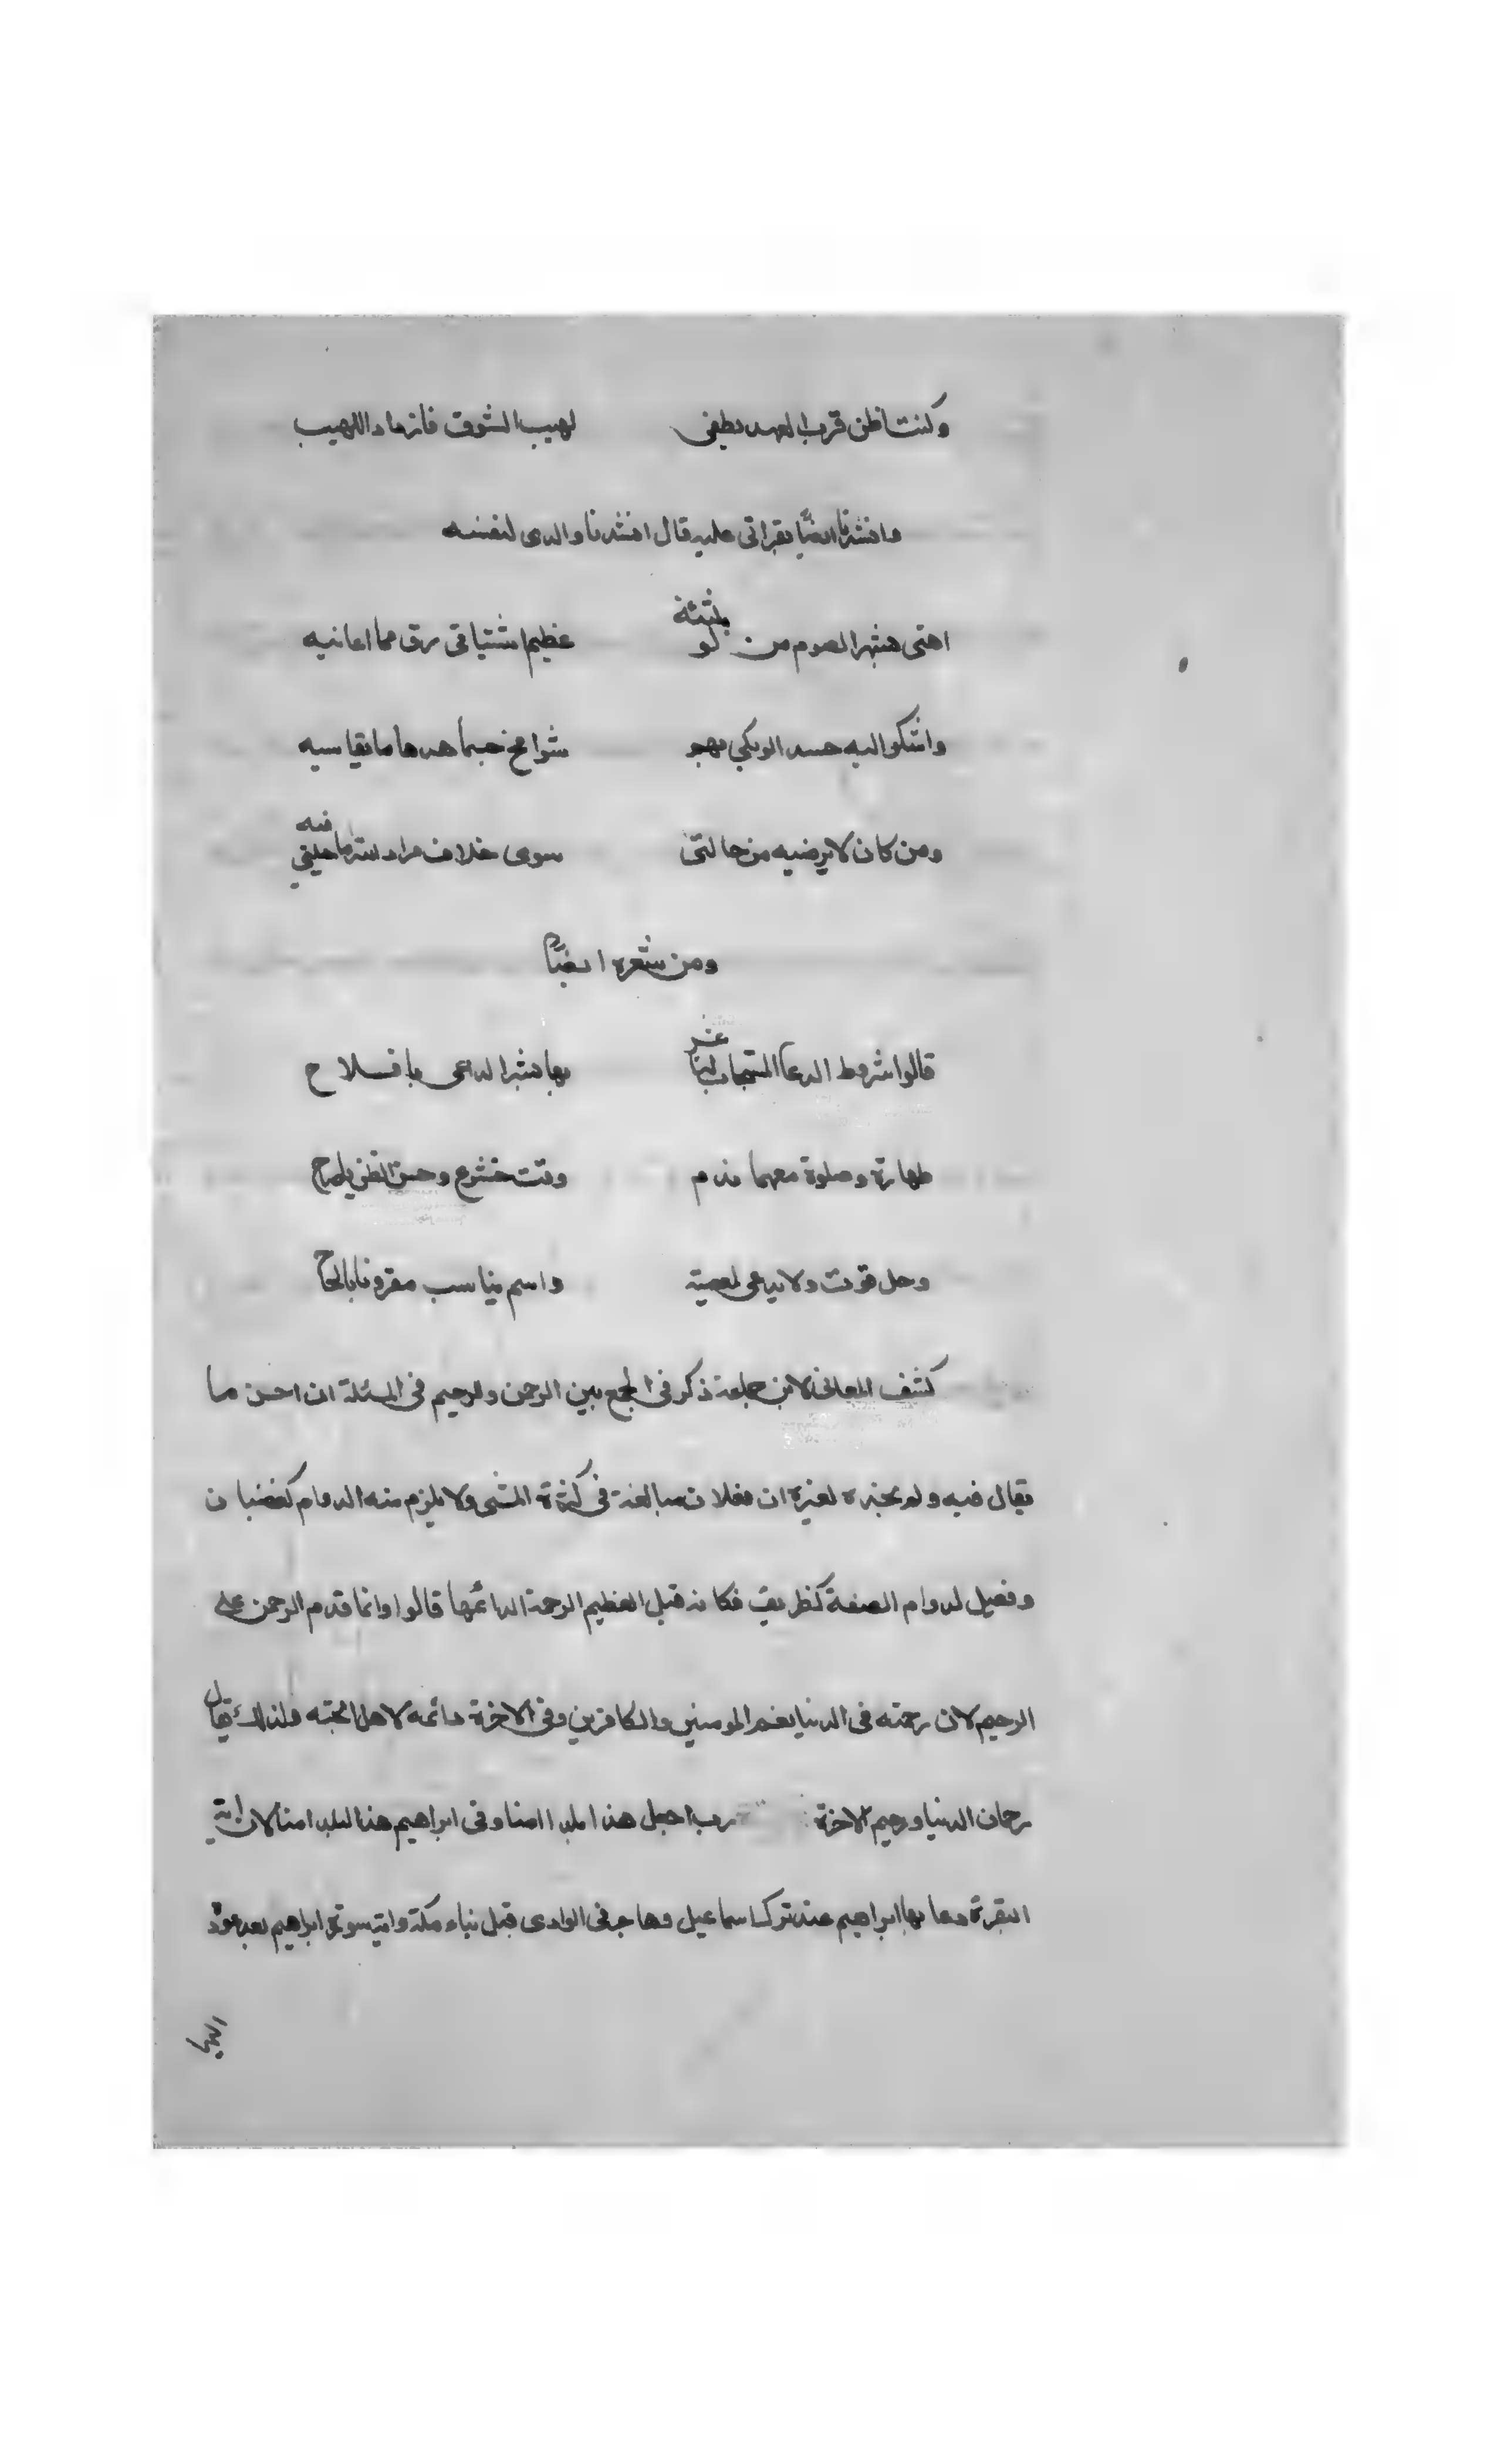 وكنت اظن قرب العهد يطفى لهيب الشوق فازداد اللهيب
وانشدنا ايضًا بقراتى عليه قال انشدنا والدى لنفسه
اهنى بشهر الصوم من لو بثثته عظيم اشتياقى رق مما اعانيه
واشكوا اليه حسد الويكى شوامخ هدها ما تقاسيه
ومن كان لا يرضيه من حالتى سوى خلاف مراد الله ما حيلتى فيه
ومن شعره ايضًا
قالوا شروط الدعا المستجاب لنا عشر بها بشر الداعى بافلاح
طهارة وصلوة معهما ندم وقت خشوع وحسن الظن ياصاح
وحل قوت ولا يدعى لمعصية واسم يناسب مقرونا بالحاح
كشف المعانى لابن جماعة ذكر فى الجمع بين الرحمن والرحيم فى المسئلة ان احسن ما
يقال فيه ولم نجده لغيره ان فعلان مبالغة فى كثرة الشى ولا يلزم منه الدوام كغضبان
وفعيل لدوام الصفة كظريف فكانه قيل العظيم الرحمة الدائمها قالوا وانما قدم الرحمن على
الرحيم لان رحمته فى الدنيا تعم المومنين والكافرين وفى الاخرة دائمة لاهل الجنه ولذلك يقال
رحمان الدنيا ورحيم الاخرة رب اجعل هذا بلدا امنا وفى ابراهيم هذا البلد امنا لان اية
البقرة دعا بها ابراهيم عند ترك اسماعيل وهاجر فى الوادى قبل بناء مكة واية سورة ابراهيم بعد عوده
اليها